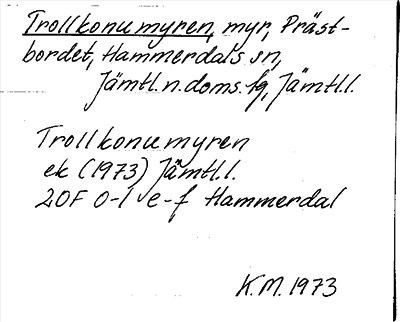 Trollkonumyren, myr, Präst-
bordet, Hammerdals sn,
Jämtl. n. doms. fg, Jämtl.l.
Trollkonumyren
ek (1973) Jämtl.l.
20F 0-1 e-f Hammerdal
K.M. 1973